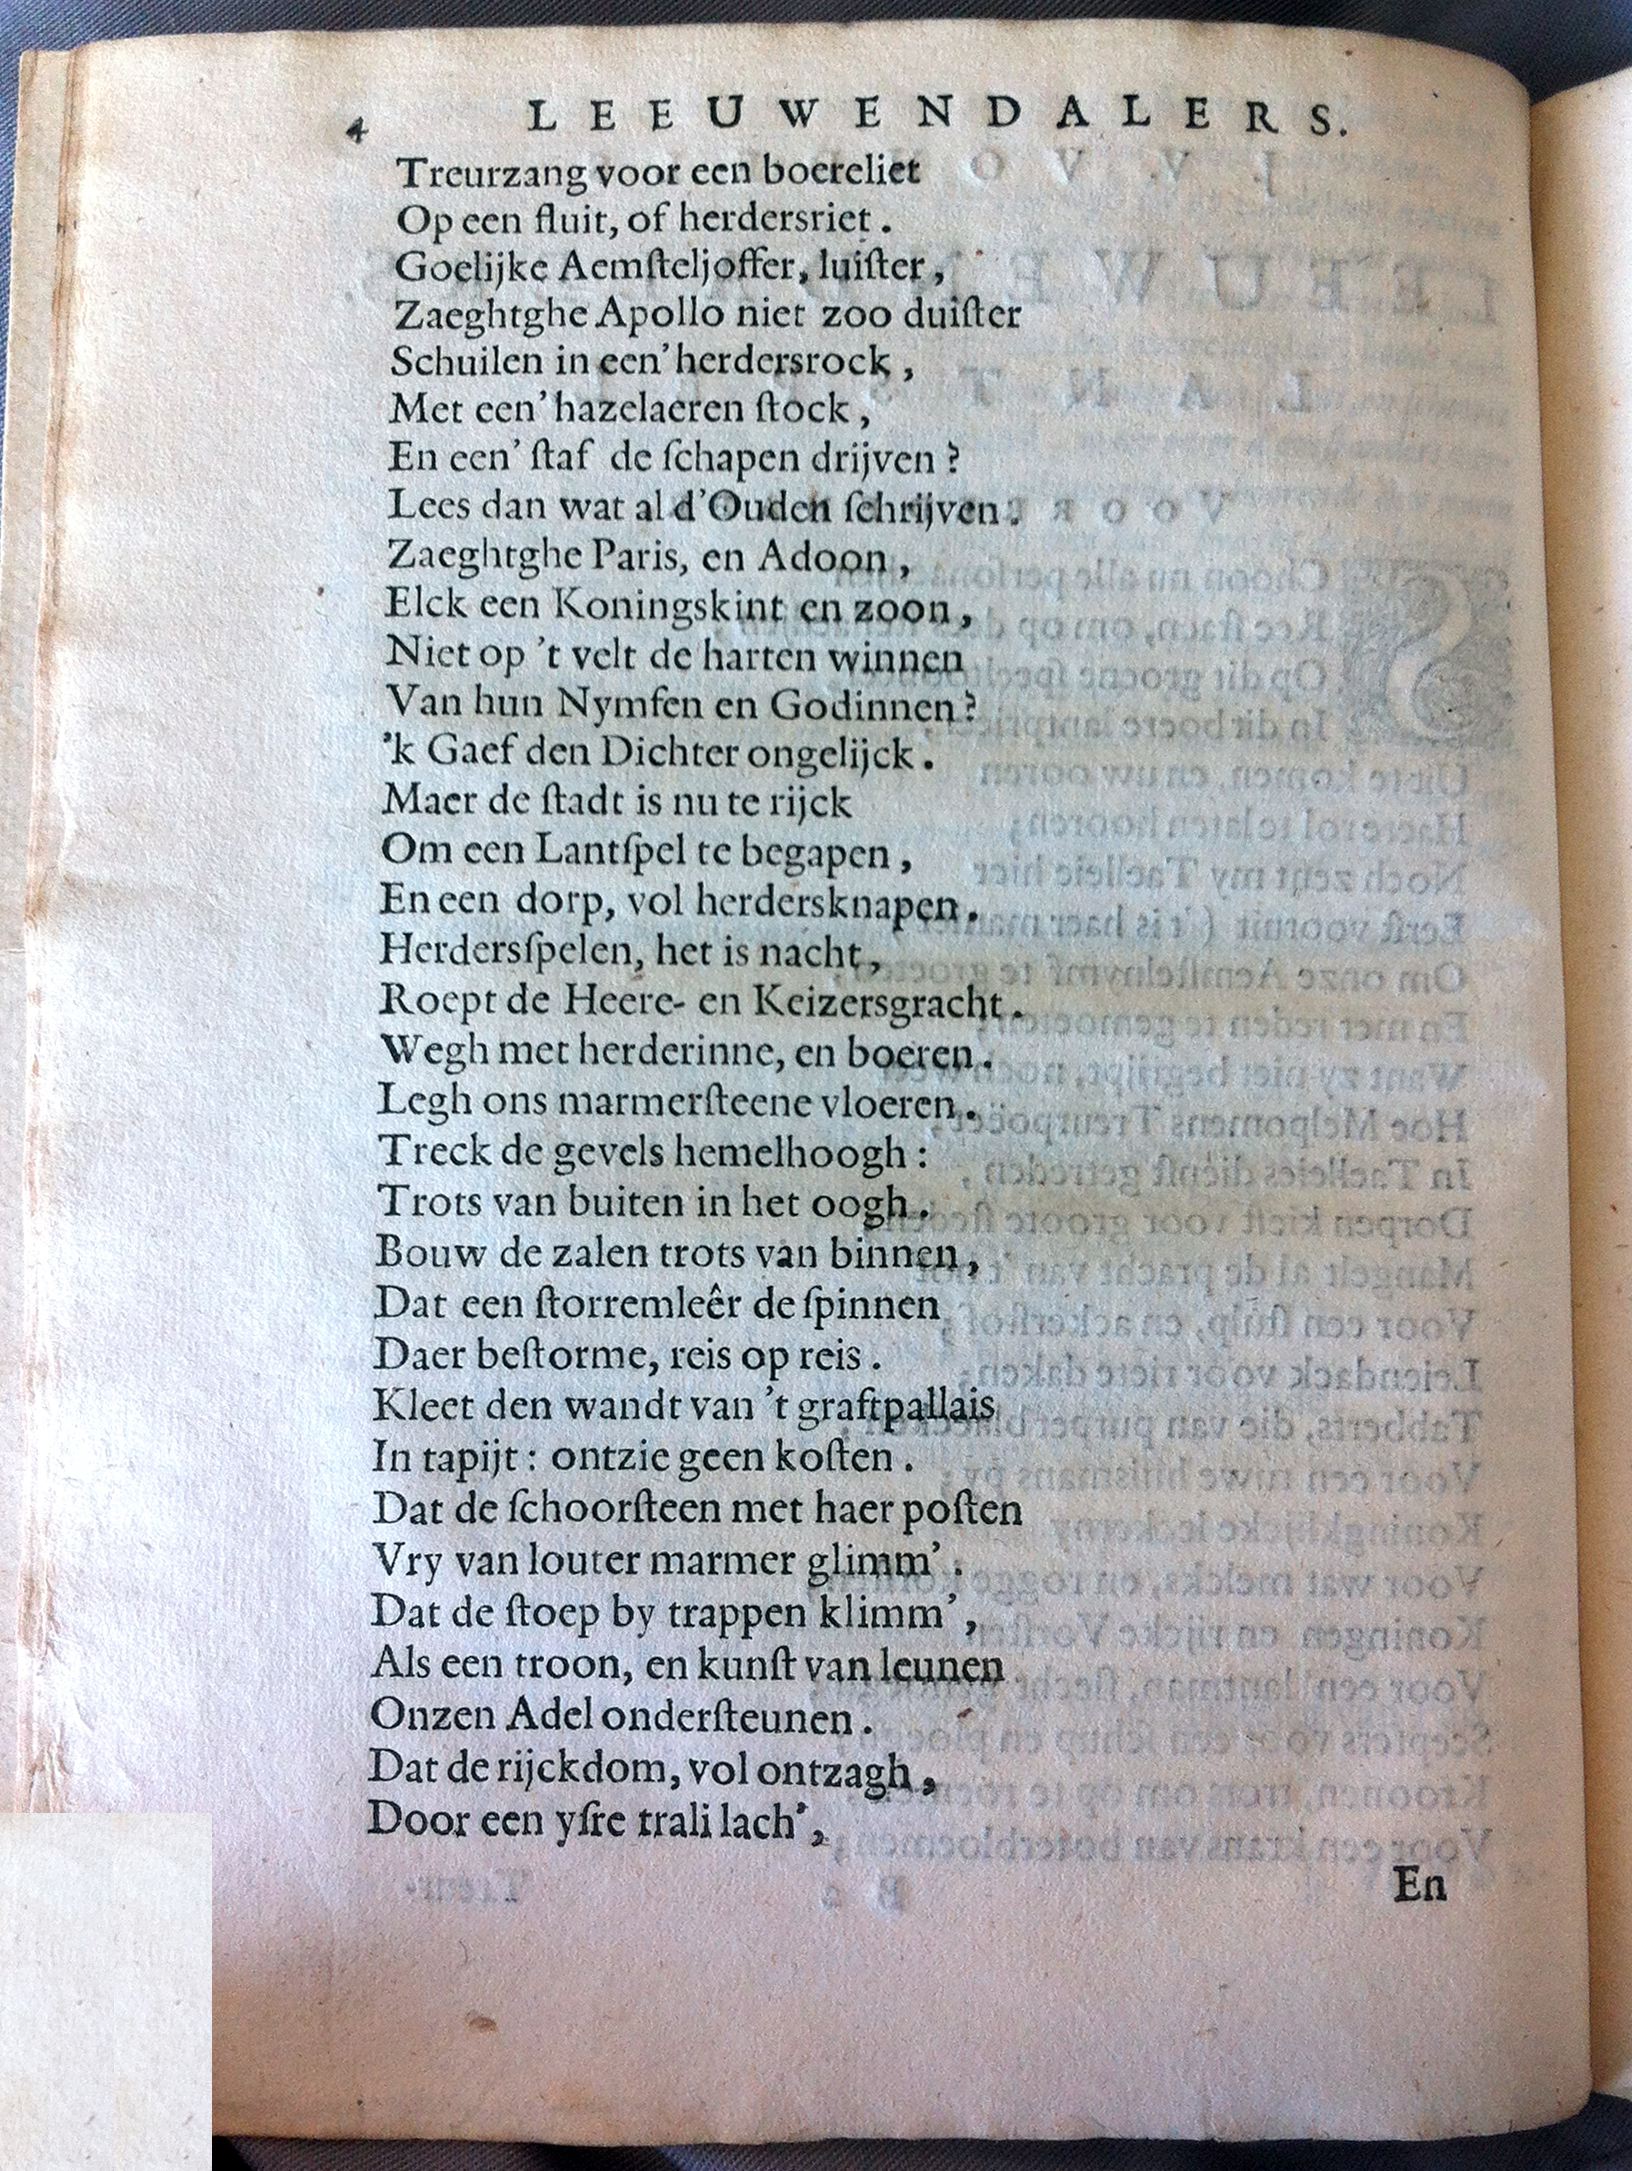 4 LEEUWENDALERS.
Treurzang voor een boereliet
Op een fluit, of herdersriet.
Goelijke Aemſteljoffer, luiſter,
Zaeghtghe Apollo niet zoo duiſter
Schuilen in een' herdersrock,
Met een' hazelaeren ſtock,
En een' ſtaf de ſchapen drijven?
Lees dan wat al d'Ouden ſchrijven.
Zaeghtghe Paris, en Adoon,
Elck een Koningskint en zoon,
Niet op 't velt de harten winnen
Van hun Nymfen en Godinnen?
'k Gaef den Dichter ongelijck.
Maer de ſtadt is nu te rijck
Om een Lantſpel te begapen,
En een dorp, vol herdersknapen.
Herdersſpelen, het is nacht,
Roept de Heere- en Keizersgracht.
Wegh met herderinne, en boeren.
Legh ons marmerſteene vloeren.
Treck de gevels hemelhoogh:
Trots van buiten in het oogh.
Bouw de zalen trots van binnen,
Dat een ſtorremleêr de ſpinnen
Daer beſtorme, reis op reis.
Kleet den wandt van 't graftpallais
In tapijt: ontzie geen koſten.
Dat de ſchoorſteen met haer poſten
Vry van louter marmer glimm'.
Dat de ſtoep by trappen klimm',
Als een troon, en kunſt van leunen
Onzen Adel onderſteunen.
Dat de rijckdom, vol ontzagh,
Door een yſre trali lach',
En